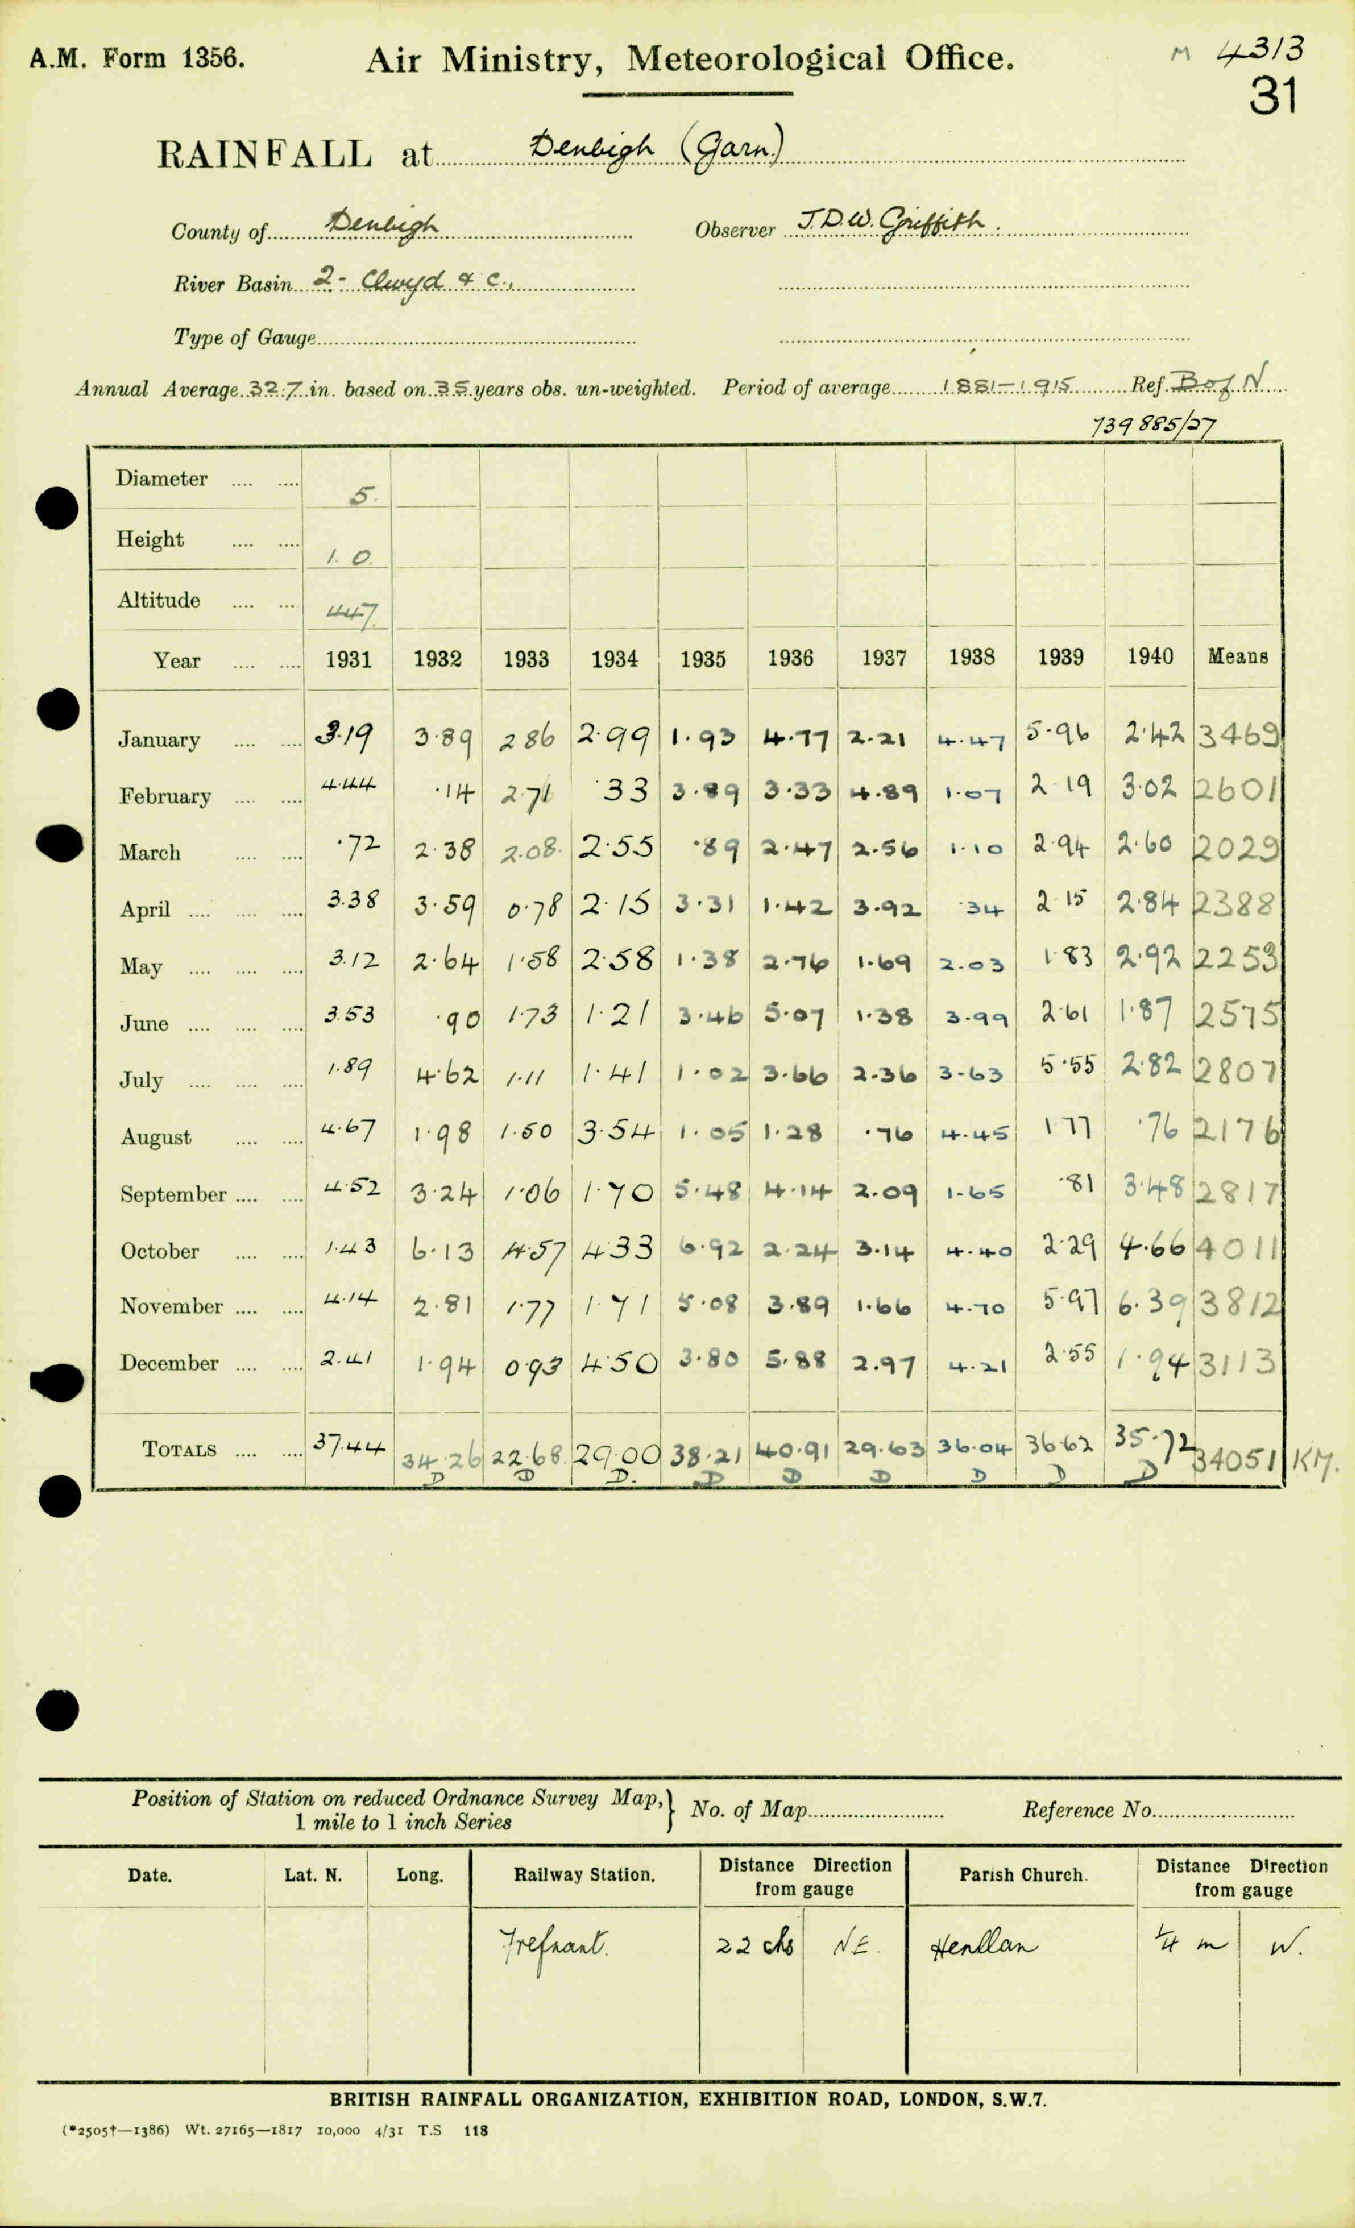 A.M. Form 1356. Air Ministry, Meteorological Office. M 4313
31
RAINFALL at Denbigh (Garn)
County of Denbigh Observer J.D.W. Griffith.
River Basin 2- Clwyd & c.,
Type of Gauge
Annual Average 32.7 in. based on 35 years obs. un-weighted. Period of average 1881-1915 Ref. B of N
739 885/27
Diameter 5.
Height 1.0
Altitude 447
Year 1931 1932 1933 1934 1935 1936 1937 1938 1939 1940 Means
January 3.19 3.89 2 86 2.99 1.93 4.77 2.21 4.47 5.96 2.42 3469
February 4.44 .14 2.71 .33 3.89 3.33 4.89 1.07 2 19 3.02 2601
March .72 2.38 2.08 2.55 .89 2.47 2.56 1.10 2.94 2.60 2029
April 3.38 3.59 0.78 2.15 3.31 1.42 3.92 .34 2 15 2.84 2388
May 3.12 2.64 1.58 2.58 1.38 2.76 1.69 2.03 1.83 2.92 2253
June 3.53 .90 1.73 1.21 3.46 5.07 1.38 3.99 2.61 1.87 2575
July 1.89 4.62 1.11 1.41 1.02 3.66 2.36 3.63 5.55 2.82 2807
August 4.67 1.98 1.50 3.54 1.05 1.28 .76 4.45 1 77 .76 2176
September 4.52 3.24 1.06 1.70 5.48 4.14 2.09 1.65 .81 3.48 2817
October 1.43 6.13 4.57 4.33 6.92 2.24 3.14 4.40 2.29 4.66 4011
November 4.14 2.81 1.77 1.71 5.08 3.89 1.66 4.70 5.97 6.39 3812
December 2.41 1.94 0.93 4.50 3.80 5.88 2.97 4.21 2.55 1.94 3113
TOTALS 37.44 34.26 22.68 29.00 38.21 40.91 29.63 36.04 36.62 35.72 34051 KM.
D D D. D D D D D D
Position of Station on reduced Ordnance Survey Map, } No. of Map Reference No.
1 mile to 1 inch Series
Date. Lat. N. Long. Railway Station. Distance Direction from gauge Parish Church. Distance Direction from gauge
Trefnant. 22 chs NE. Henllan 1/4 m W.
BRITISH RAINFALL ORGANIZATION, EXHIBITION ROAD, LONDON, S.W.7.
(*2505†—1386) Wt. 27165—1817 10,000 4/31 T.S 118